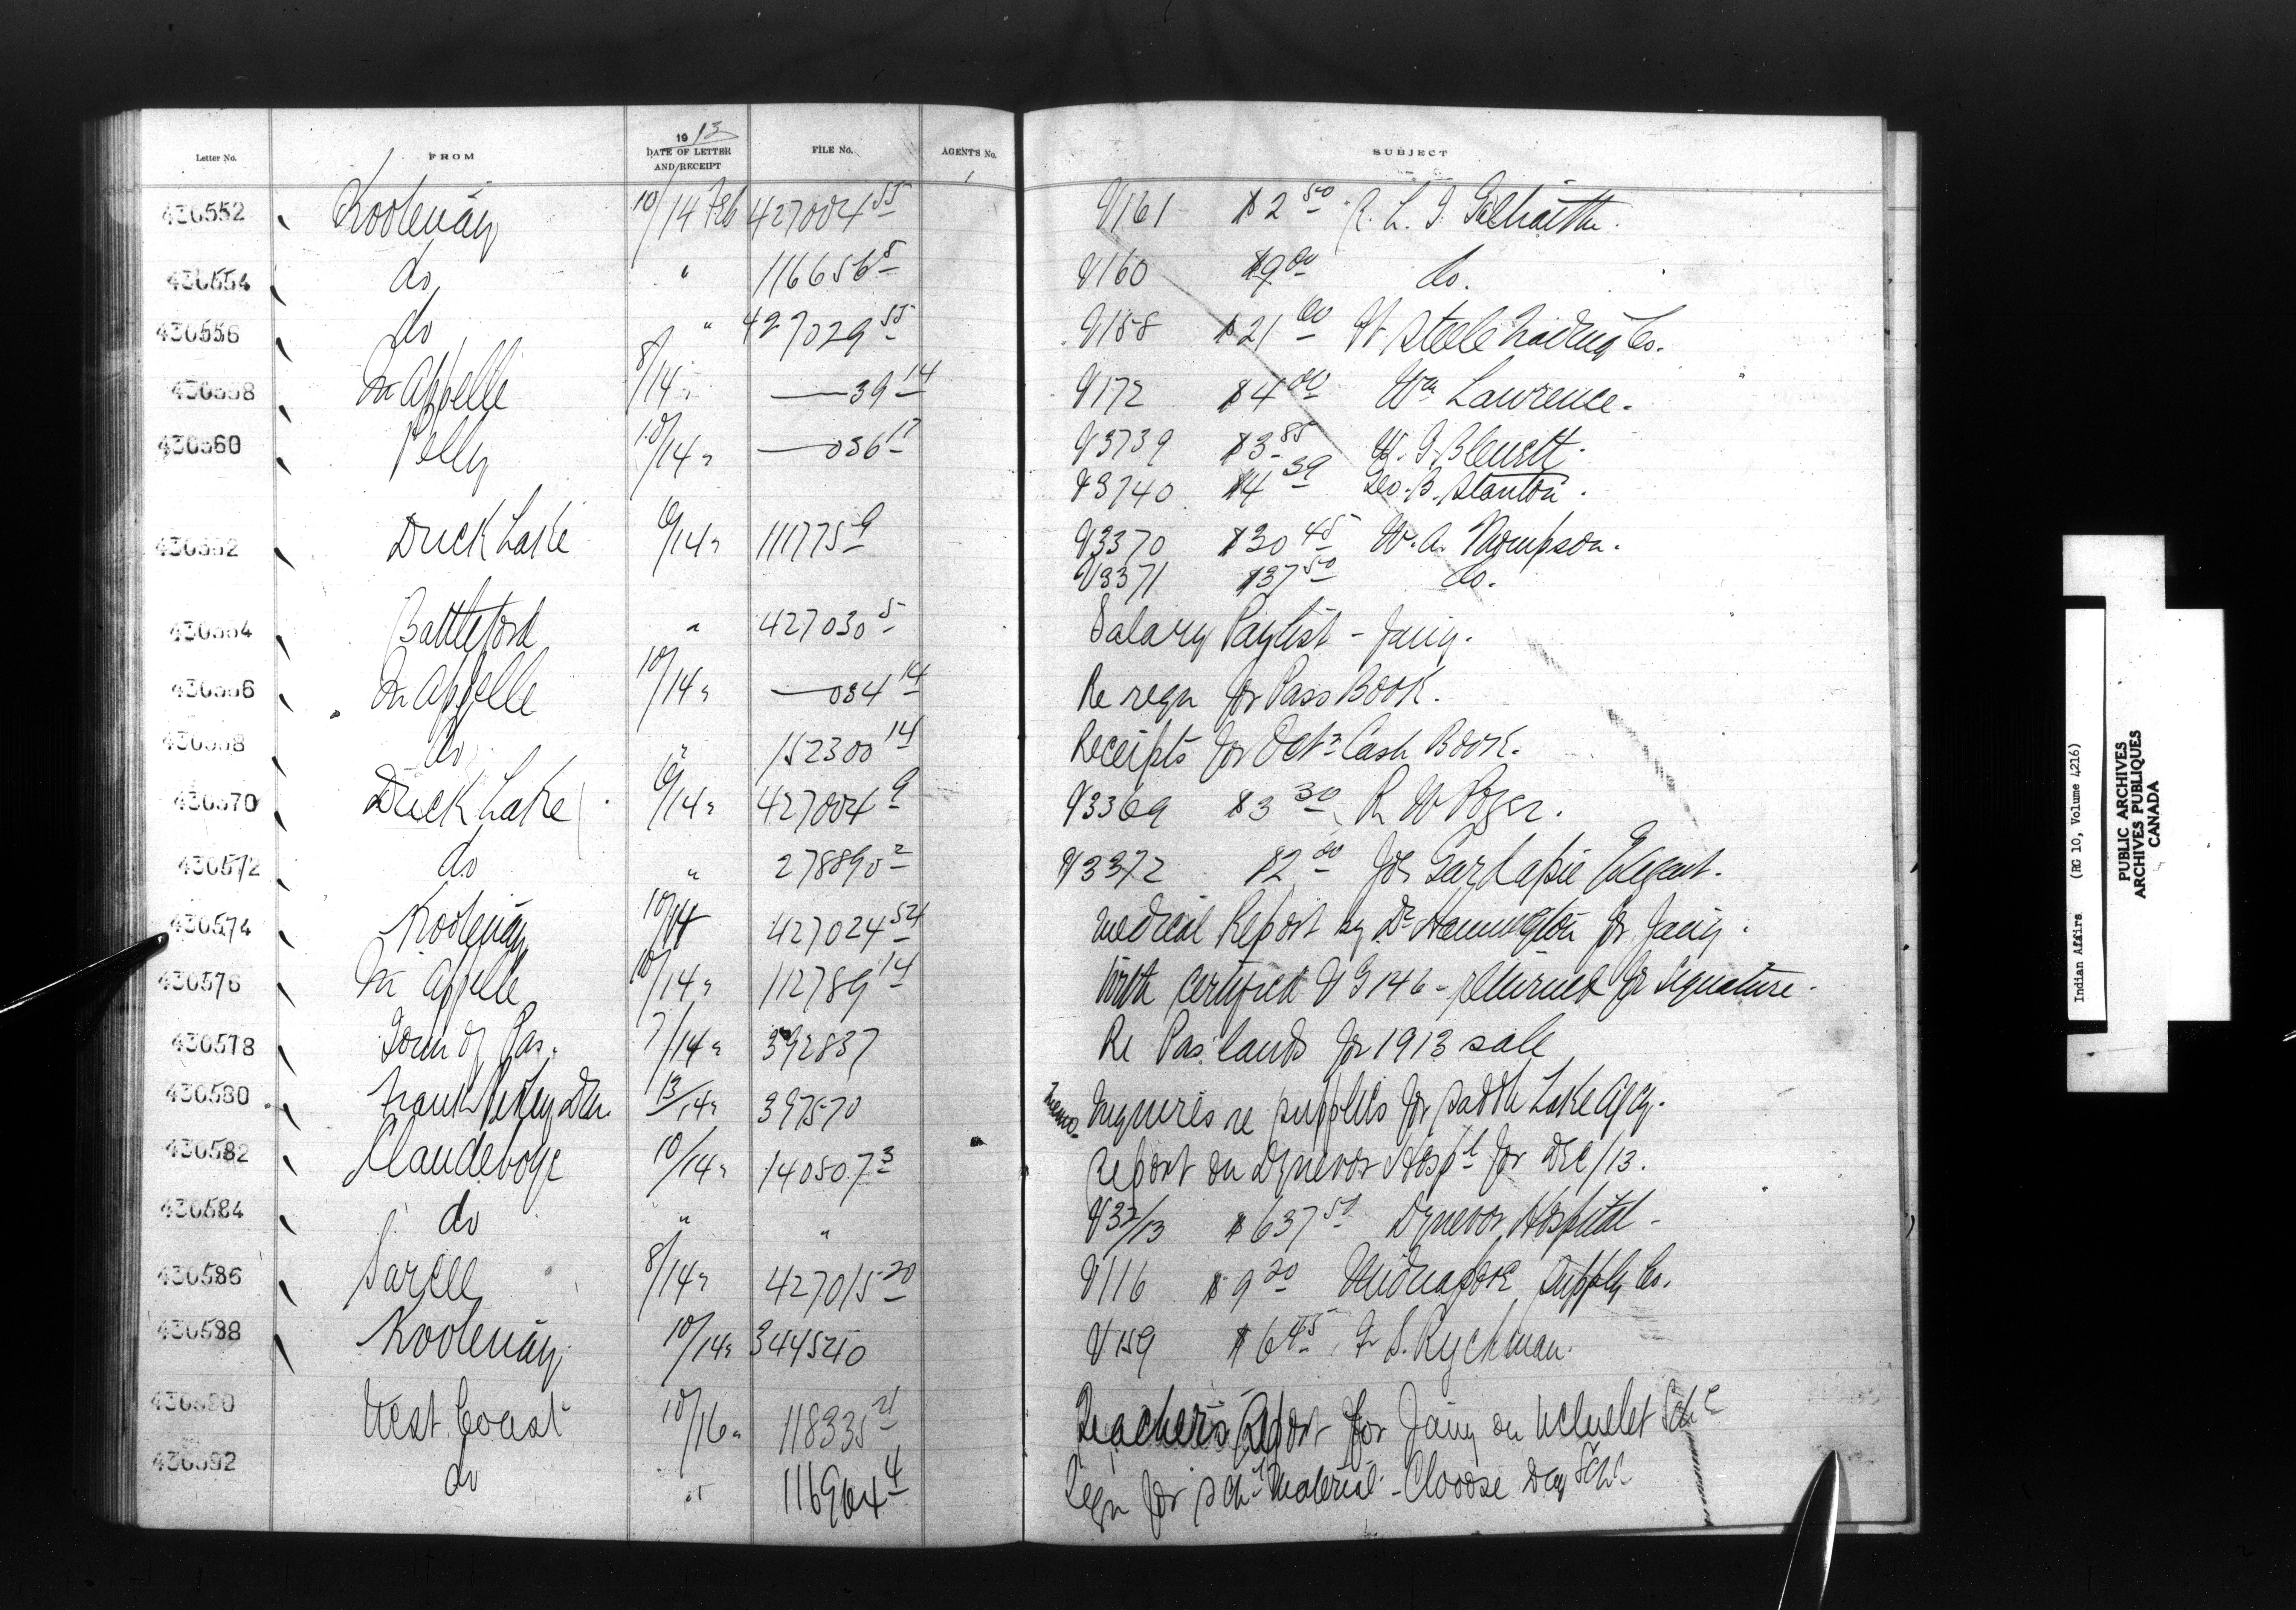 Letter No. FROM 1913 DATE OF LETTER AND RECEIPT FILE No. AGENT'S No. SUBJECT
430552 Kootenay 10/14 Feb 427004 55 V161 $2 50 R. L. T. Galbraith.
430554 do " 116656 5 V160 $9 00 do.
430556 do " 427029 55 V158 $21 00 W. Steele Trading Co.
430558 Qu Appelle 8/14 " — 39 14 V172 $4 00 Wm Lawrence.
430560 Pelly 10/14 " — 036 17 V3739 $3 85 W. J. Blewett.
V3740 $4 39 Geo. B. Stanton.
430562 Duck Lake 10/14 " 111775 9 V3370 $30 45 W. A. Thompson.
V3371 $37 50 do.
430564 Battleford " 427030 5 Salary Paylist - Jany.
430566 Qu Appelle 10/14 " — 034 14 Re reqn for Pass Book.
430568 do " 152300 14 Receipts for Octr Cash Book.
430570 Duck Lake 10/14 " 427004 9 V3369 $3 30 R W
430572 do " 278890 2 V3372 $2 00 Gardapie
430574 Kootenay 10/14 427024 54 Medical Report by Dr Hannington for Jany.
430576 Qu Appelle 10/14 " 112789 14 With certified V G 146 - returned for signature.
430578 Town of Pas. 7/14 " 392837 Re Pas lands for 1913 sale
430580 Frank Pedley 13/14 " 397570 Memo. Inquiries re supplies for Saddle Lake Agcy.
430582 Clandeboye 10/14 " 140507 3 Report on Dynevor Hospl for Dec/13.
430584 do " " V32/13 $637 50 Dynevor Hospital -
430586 Sarcee 8/14 " 427015 20 V116 $9 20 Midnapore Supply Co.
430588 Kootenay 10/14 " 344540 V159 $6 45 F. S. Ryckman.
430590 West Coast 10/16 " 118335 21 Teacher's Report for Jany on Ucluelet Schl
430592 do " 116964 4 Reqn for Schl Material - Clooose Day Schl
Indian Affairs (RG 10, Volume 4216)
PUBLIC ARCHIVES
ARCHIVES PUBLIQUES
CANADA